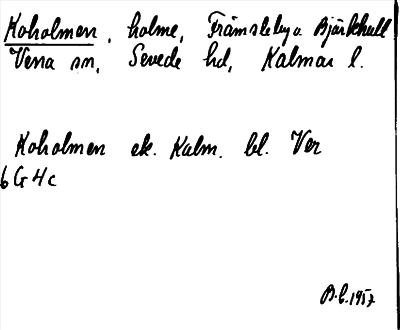 Koholmen, holme, Främsteby o. Bjärkhult
Vena sn, Sevede hd, Kalmar l.
Koholmen ek. Kalm. bl. Ver
6 G 4c
B.L. 1957